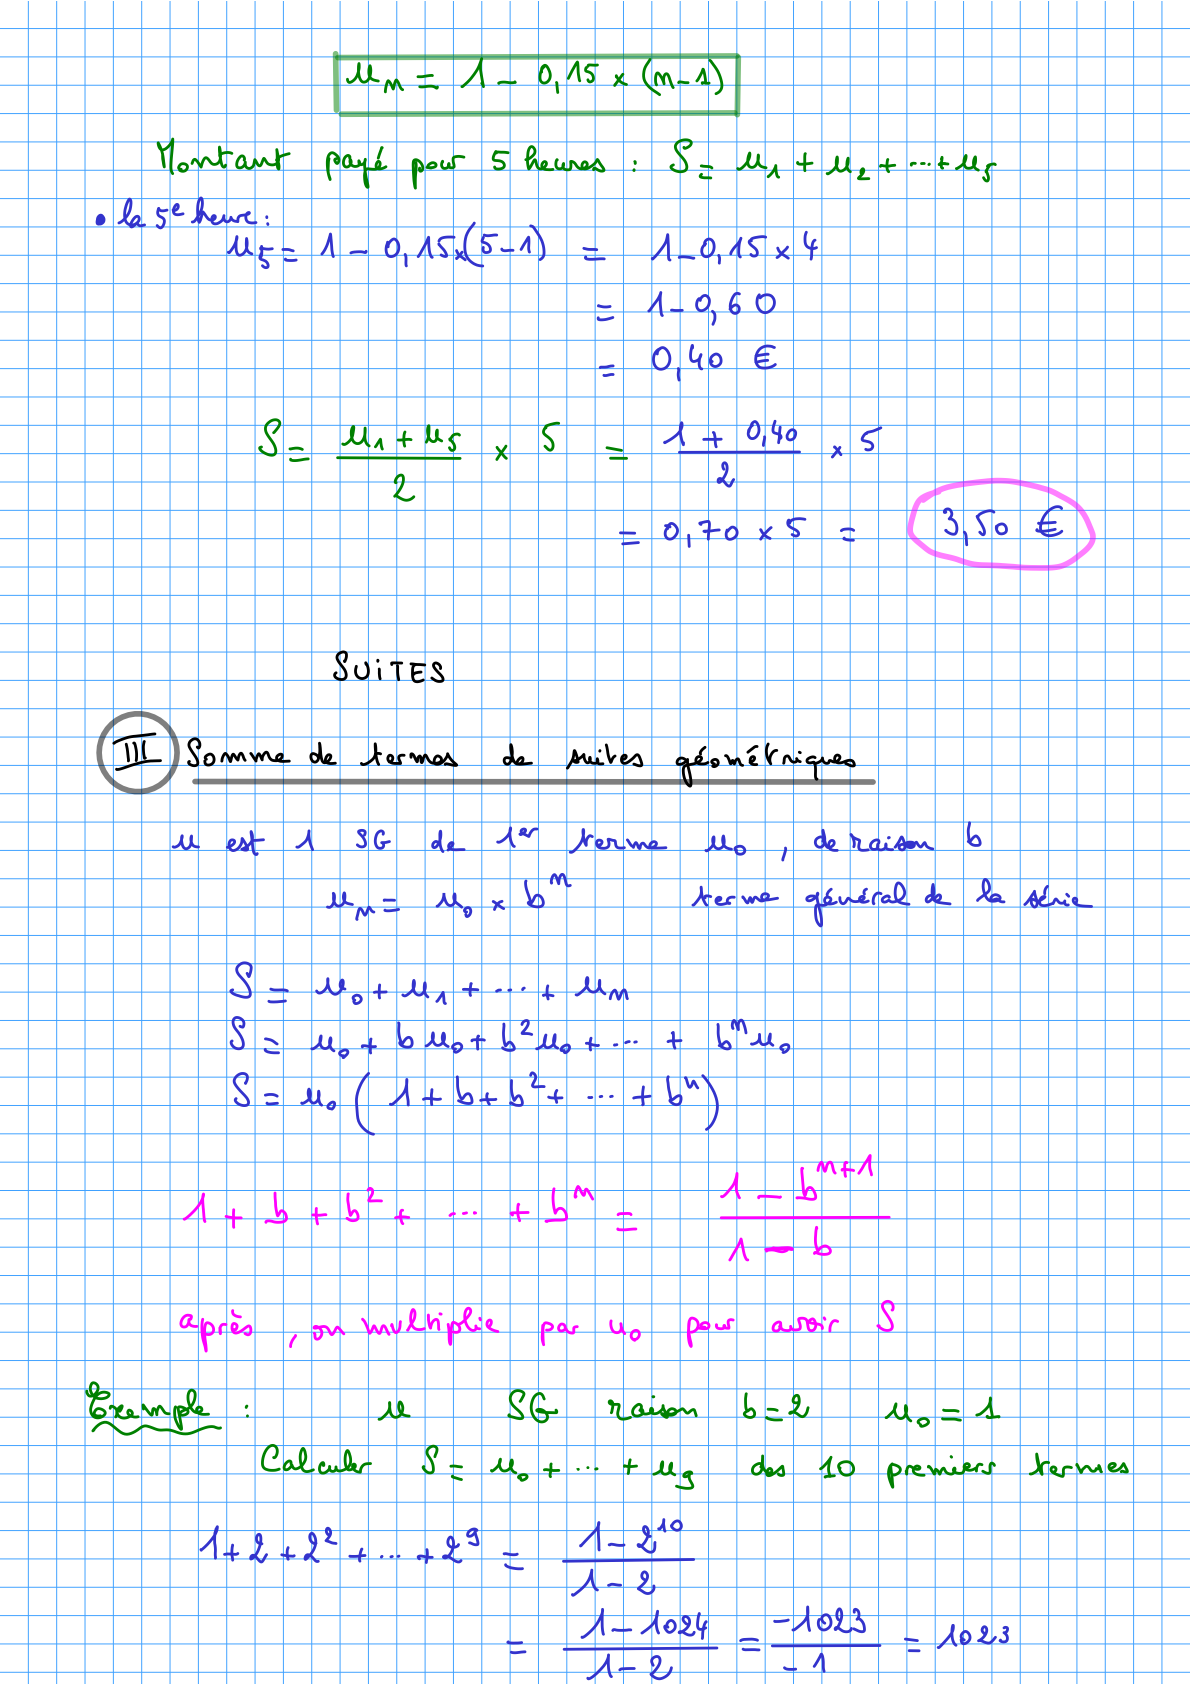 u_n = 1 - 0,15 × (n-1)
Montant payé pour 5 heures : S = u_1 + u_2 + ... + u_5
• la 5e heure :
u_5 = 1 - 0,15 × (5-1) = 1 - 0,15 × 4
= 1 - 0,60
= 0,40 €
S = (u_1 + u_5)/2 × 5 = (1 + 0,40)/2 × 5
= 0,70 × 5 = 3,50 €
SUiTES
III Somme de termes de suites géométriques
u est 1 SG de 1er terme u_0, de raison b
u_n = u_0 × b^n terme général de la série
S = u_0 + u_1 + ... + u_n
S = u_0 + b u_0 + b^2 u_0 + ... + b^n u_0
S = u_0 (1 + b + b^2 + ... + b^n)
1 + b + b^2 + ... + b^n = (1 - b^(n+1))/(1 - b)
après, on multiplie par u_0 pour avoir S
Exemple : u SG raison b = 2 u_0 = 1
Calculer S = u_0 + ... + u_9 des 10 premiers termes
1 + 2 + 2^2 + ... + 2^9 = (1 - 2^10)/(1 - 2)
= (1 - 1024)/(1 - 2) = (-1023)/(-1) = 1023